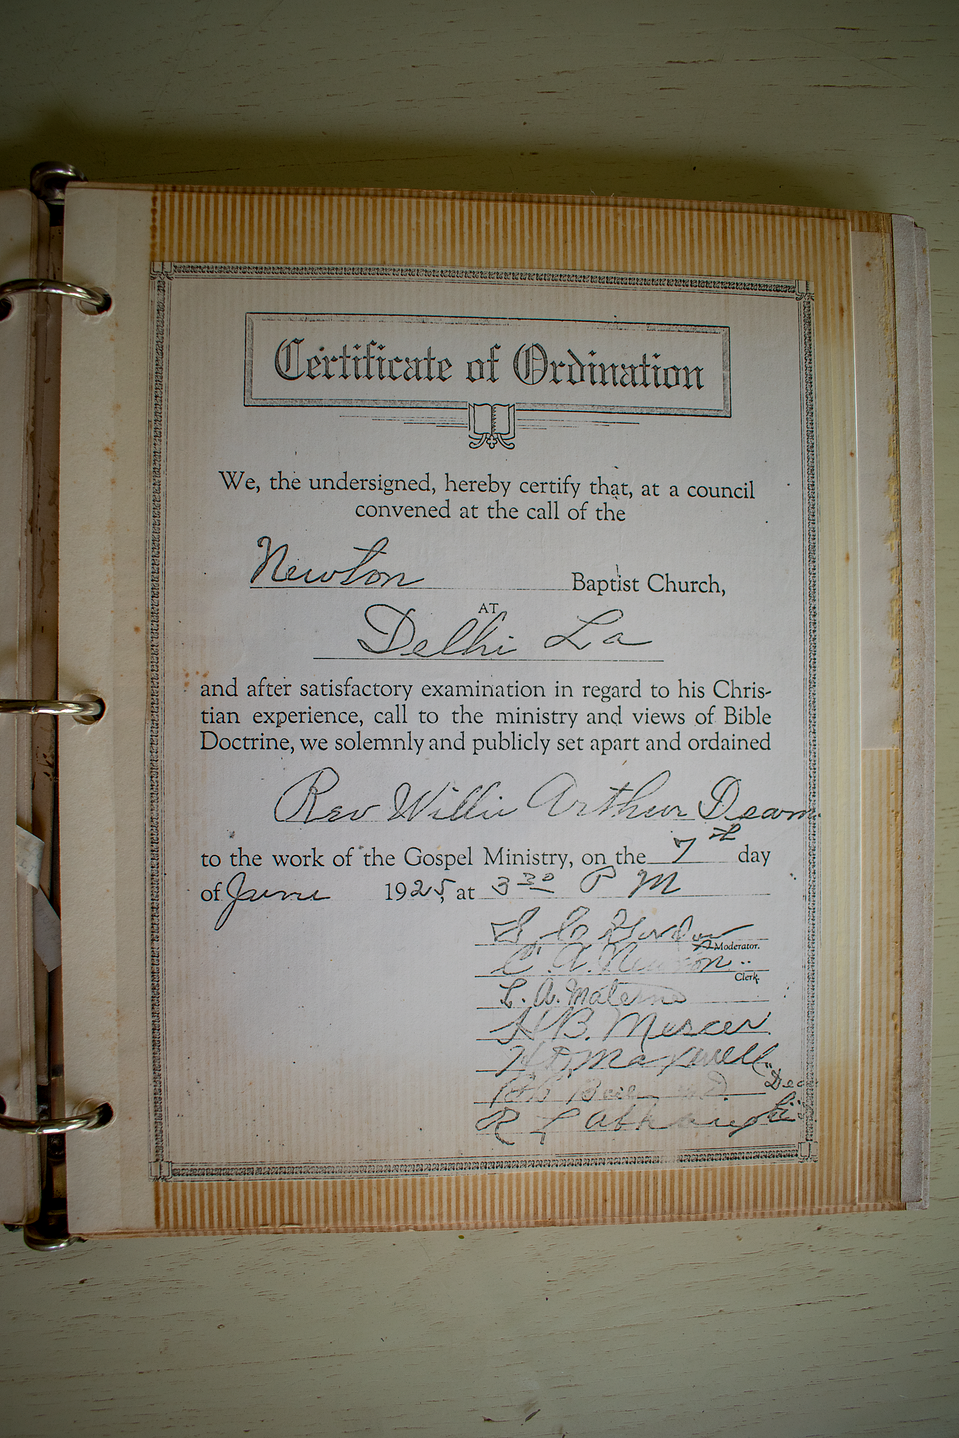 Certificate of Ordination
We, the undersigned, hereby certify that, at a council
convened at the call of the
Newton Baptist Church,
AT
Delhi La
and after satisfactory examination in regard to his Chris-
tian experience, call to the ministry and views of Bible
Doctrine, we solemnly and publicly set apart and ordained
Rev Willie Arthur
to the work of the Gospel Ministry, on the 7th day
of June 1925, at 3 30 P M
Moderator.
C. A. Newton
Clerk.
L. A.
H B. Mercer
Maxwell
R L